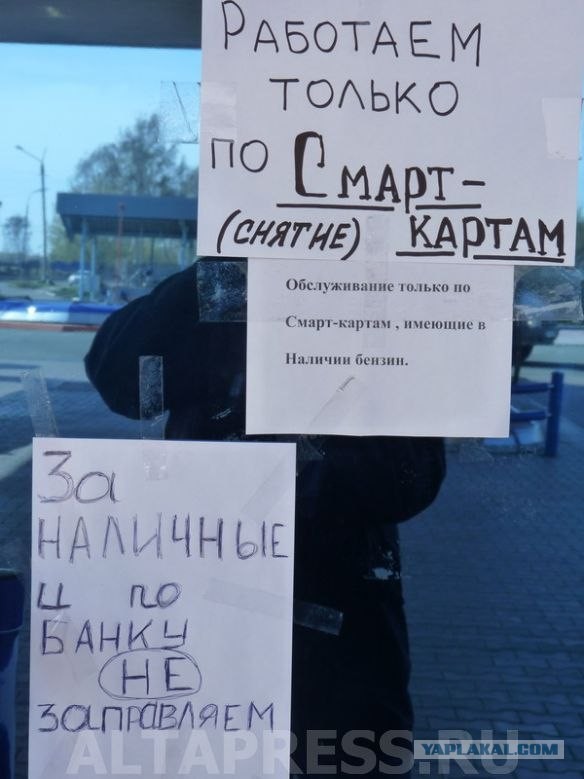 РАБОТАЕМ
ТОЛЬКО
ПО СМАРТ-
(СНЯТИЕ) КАРТАМ
Обслуживание только по
Смарт-картам , имеющие в
Наличии бензин.
За
НАЛИЧНЫЕ
и по
БАНКУ
НЕ
ЗАПРАВЛЯЕМ
ALTAPRESS.RU
YAPLAKAL.COM